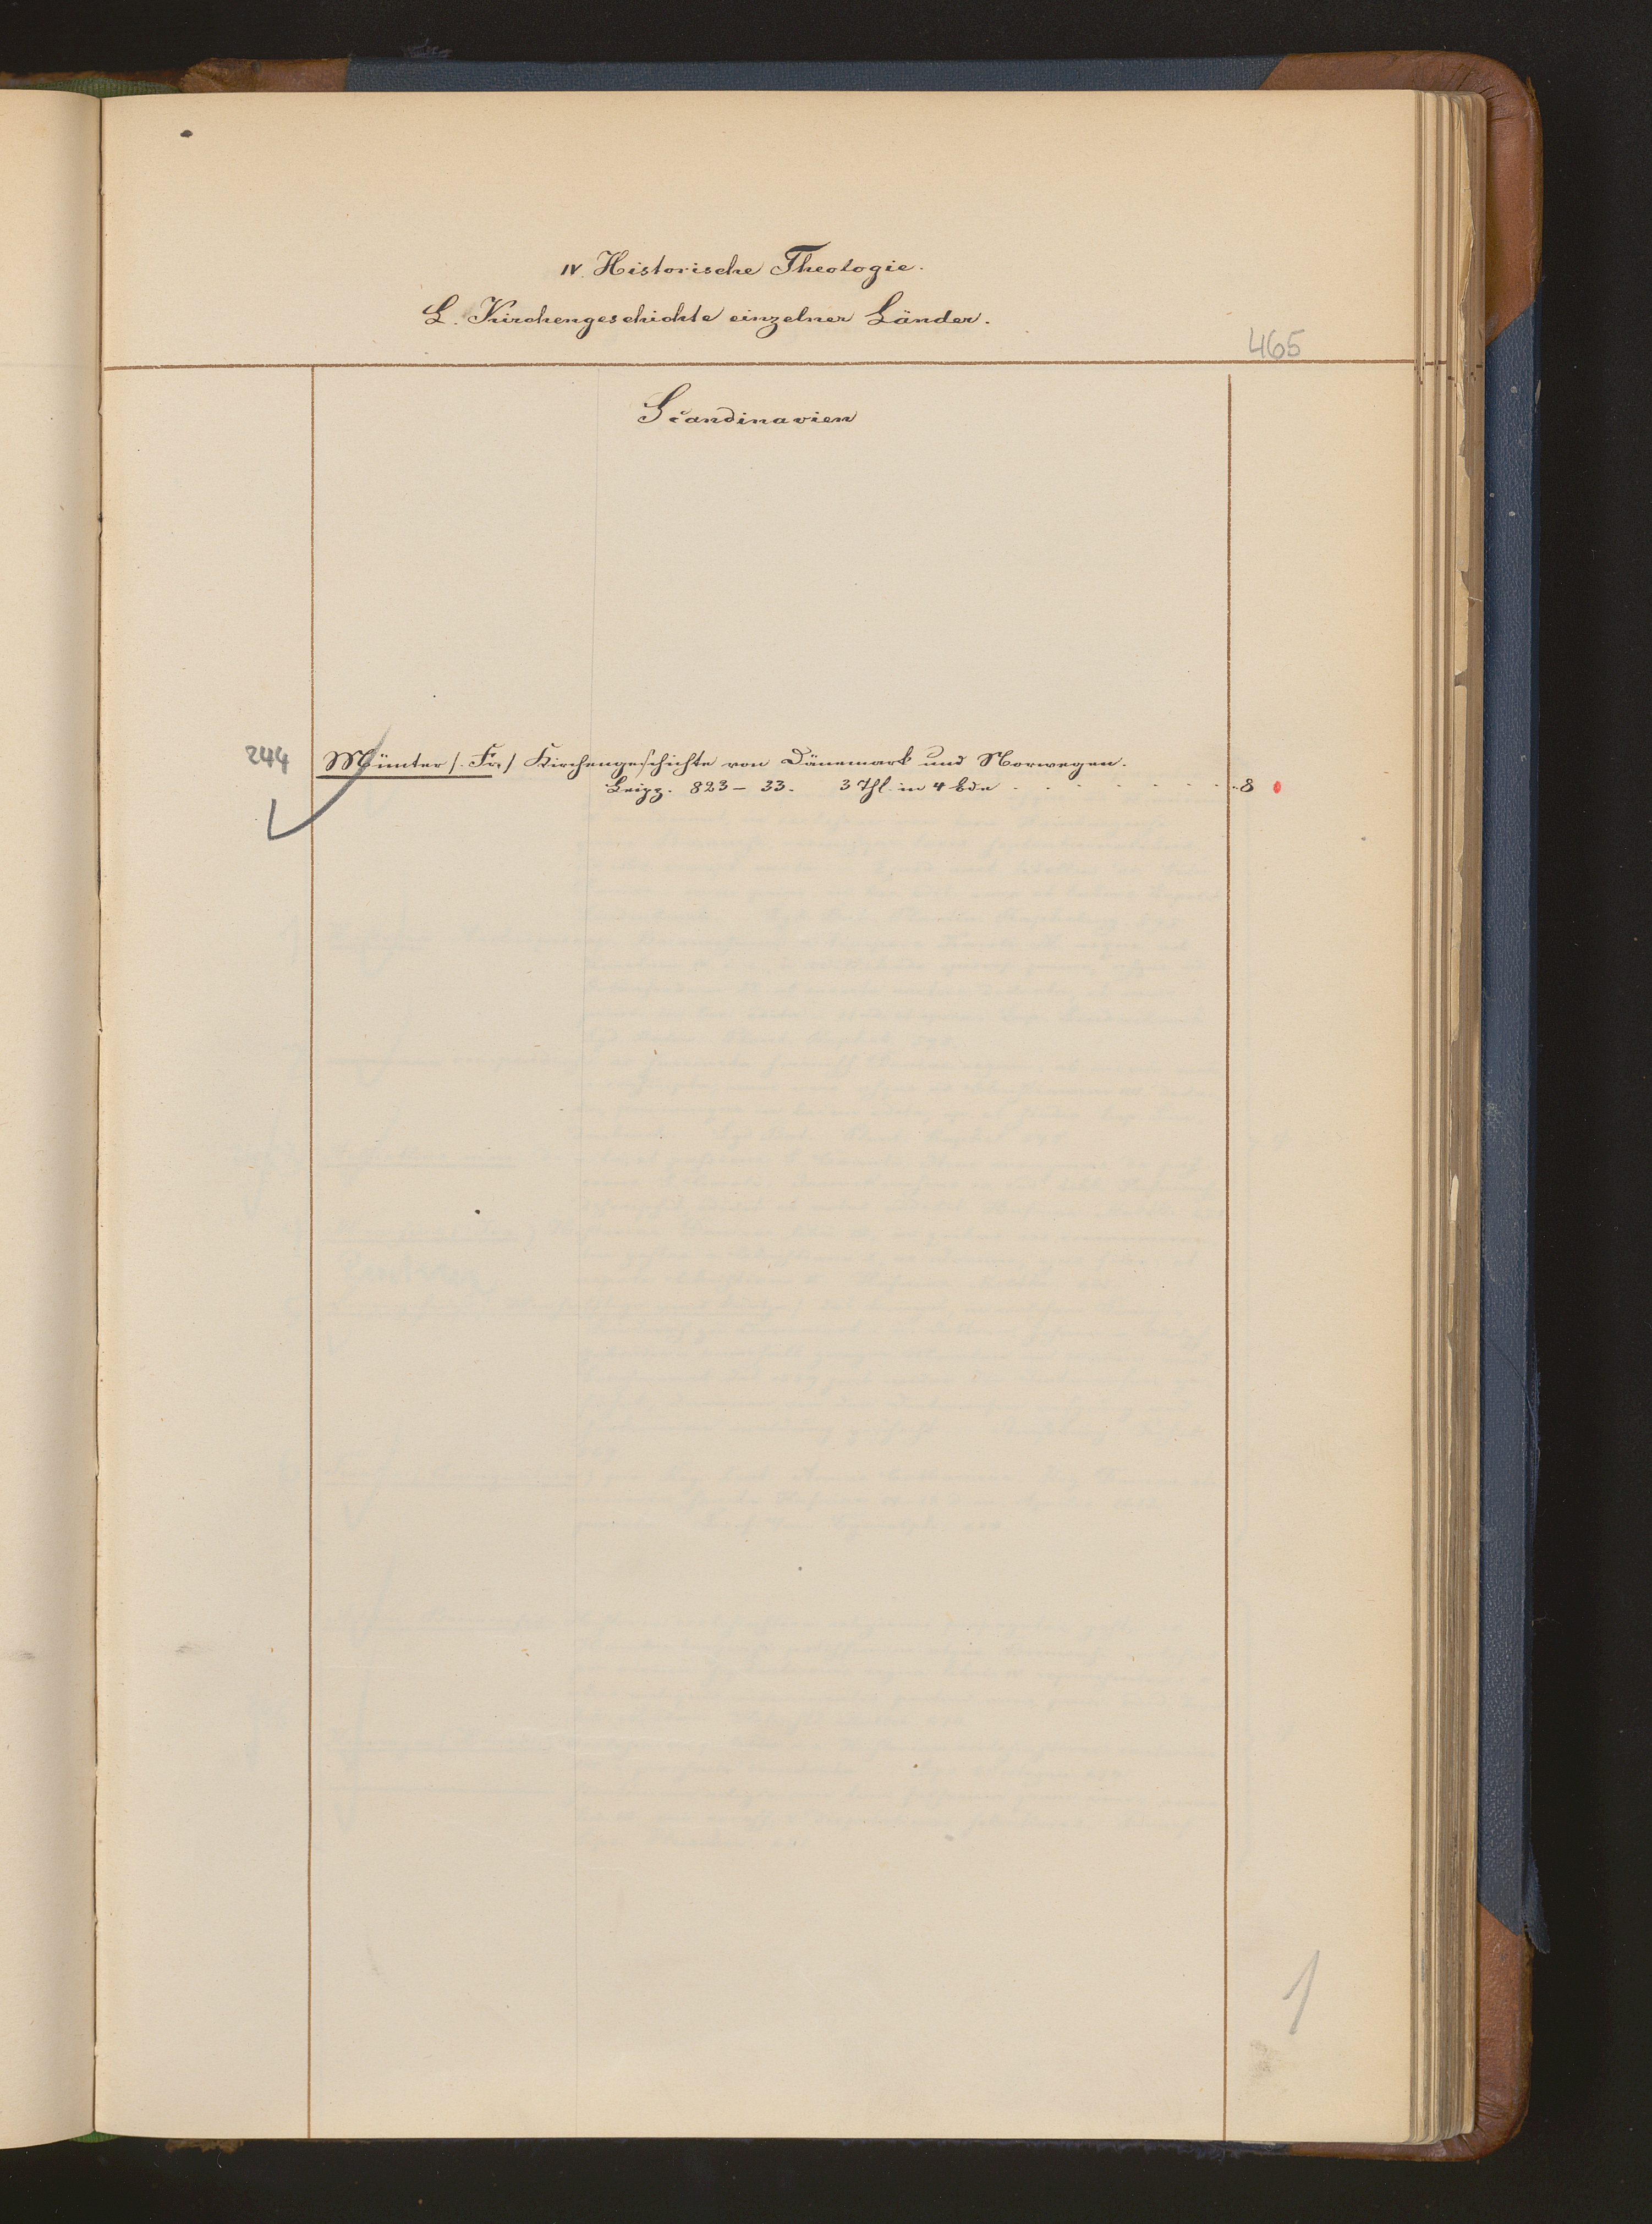 IV. Historische Theologie.
L. Kirchengeschichte einzelner Länder.
465
Scandinavien
244 Münter /. Fr./ Kirchengeschichte von Dänemark und Norwegen.
Leipz. 823 – 33. 3 Thl. in 4 bde . . . . . . . . 8
1